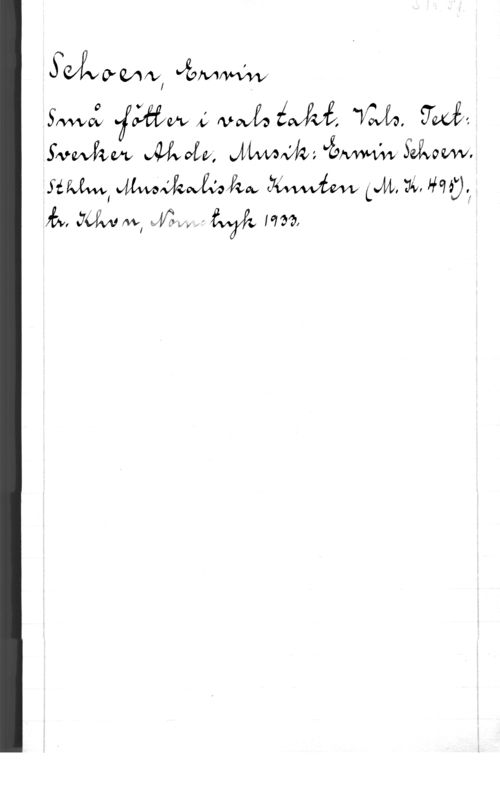 Schoen, Erwin
Små fötter i valstakt. Vals. Text:
Sverker Ahde. Musik: Erwin Schoen.
Sthlm, Musikaliska Knuten (M. K. 495);
tr. Khvn, 1933.